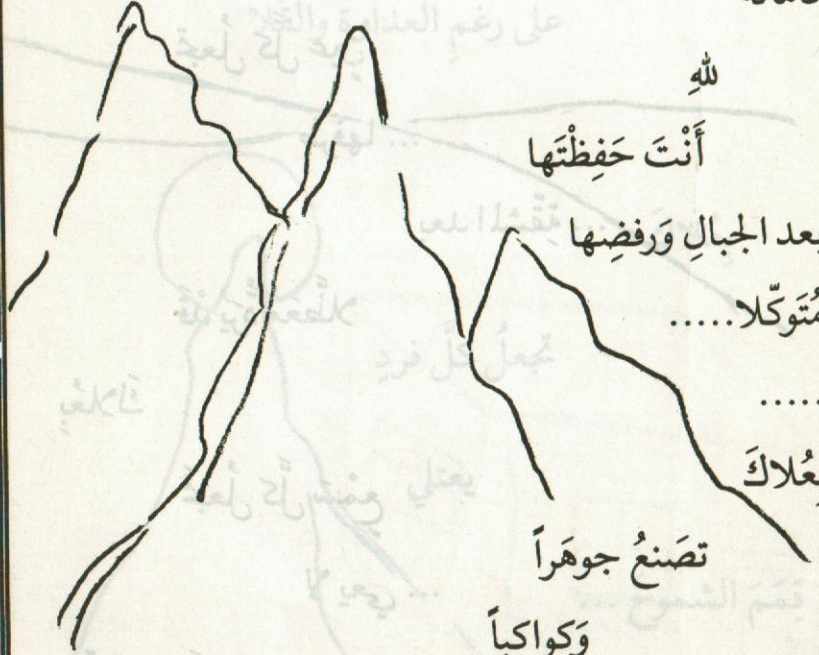 للهِ
أَنْتَ حَفِظْتَها
بعد الجبالِ وَرفضِها
مُتَوكّلا.....
.....
بِعُلاكَ
تصَنعُ جوهَراً
وَكواكباً